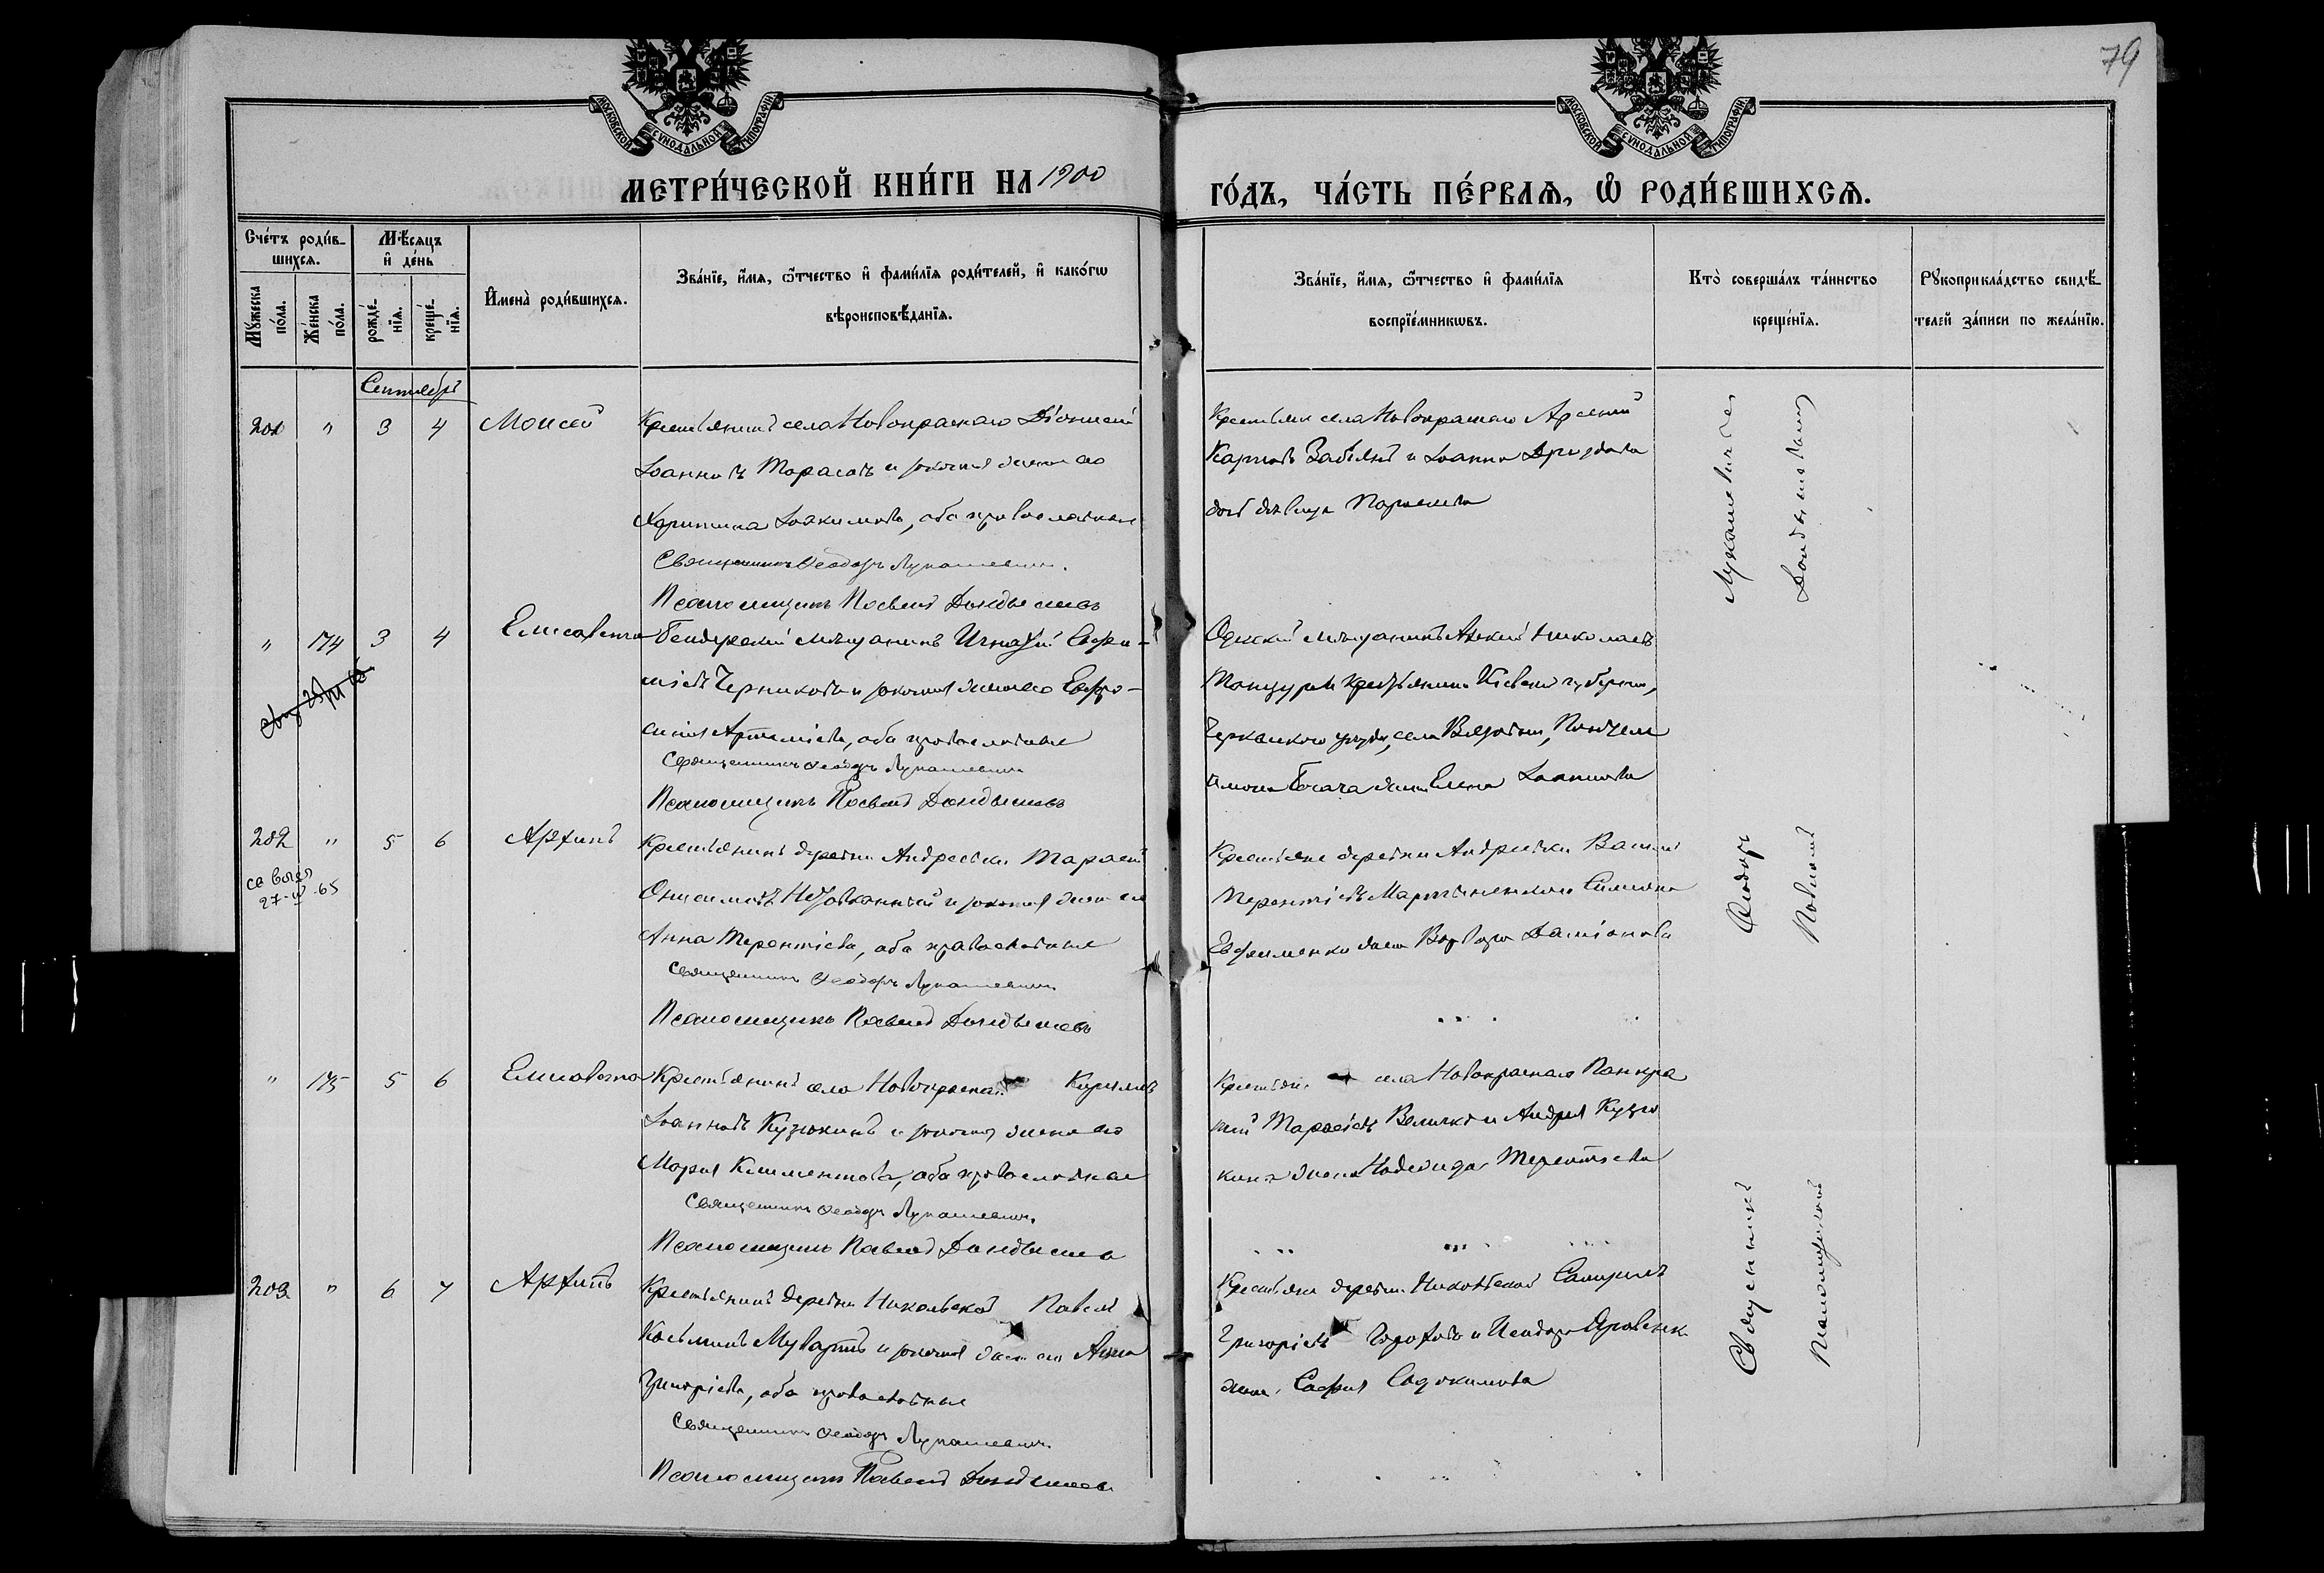 79
МОСКОВСКОЙ СУНОДАЛЬНОЙ ТИПОГРАФІИ
МОСКОВСКОЙ СУНОДАЛЬНОЙ ТИПОГРАФІИ
МЕТРИ́ЧЕСКОЙ КНИ́ГИ НА 1900
ГО́ДЪ, ЧА́СТЬ ПЕ́РВАѦ, Ѡ҆ РОДИ́ВШИХСѦ.
Сче́тъ роди́в-
шихсѧ.
Мꙋ́жеска
по́ла.
Же́нска
по́ла.
Мѣ́сѧцъ
и҆ де́нь
рожде́-
нїѧ.
креще́-
нїѧ.
И҆мена̀ роди́вшихсѧ.
Зва́нїе, и҆́мѧ, ѻ҆́тчество и҆ фами́лїѧ роди́телей, и҆ како́гѡ
вѣроисповѣ́данїѧ.
Зва́нїе, и҆́мѧ, ѻ҆́тчество и҆ фами́лїѧ
воспрїе́мникѡвъ.
Кто̀ соверша́лъ та́инство
креще́нїѧ.
Рꙋкоприкла́дство свидѣ́-
телей за́писи по жела́нїю.
Сентябрь
201 " 3 4 Моисей
Крестьянинъ села Новокраснаго Діонисій
Іоанновъ Тарасовъ и законная жена его
Харитина Іоакимова, оба православные
Священникъ Ѳеодоръ Лукашевичъ.
Псаломщикъ Павелъ Дондышевъ
Крестьяне села Новокраснаго Арсеній
Карповъ и Іоанна
дочь девица
" 174 3 4 Елисавета
Бендерскій мѣщанинъ Игнатій Евфи-
міевъ Черниковъ и законная жена его Евфро-
синія Артеміева, оба православные
Священникъ Ѳеодоръ Лукашевичъ
Псаломщикъ Павелъ Дондышевъ
Одесскій мѣщанинъ Николаевъ
крестьянина Кіевской губерніи,
Черкасскаго уѣзда, села
жена Елена Іоаннова
202 " 5 6 Архипъ
27-IV-65
Крестьянинъ деревни Андреевки Тарасій
Онисимовъ и законная жена его
Анна Терентіева, оба православные
Священникъ Ѳеодоръ Лукашевичъ
Псаломщикъ Павелъ Дондышевъ
Крестьяне деревни Андреевки
Терентіевъ и Симеона
Евфименко жена Варвара Даміанова
" 175 5 6 Елисавета
Крестьянинъ села Новокраснаго Кириллъ
Іоанновъ Кузюкинъ и законная жена его
Марія Климентова, оба православные
Священникъ Ѳеодоръ Лукашевичъ.
Псаломщикъ Павелъ Дондышевъ
Крестьяне села Новокраснаго Панкра
тій Тарасіевъ Величко и Андрея Кузю
кина жена Надежда Терентіева
203 " 6 7 Архипъ
Крестьянинъ деревни Никольской Павелъ
Косьминъ и законная жена его Анна
Григоріева, оба православные
Священникъ Ѳеодоръ Лукашевичъ.
Псаломщикъ Павелъ Дондышевъ
Крестьяне деревни Никольской
Григоріевъ и
жена Софія
Священникъ Ѳеодоръ Лукашевичъ
Псаломщикъ Павелъ Дондышевъ